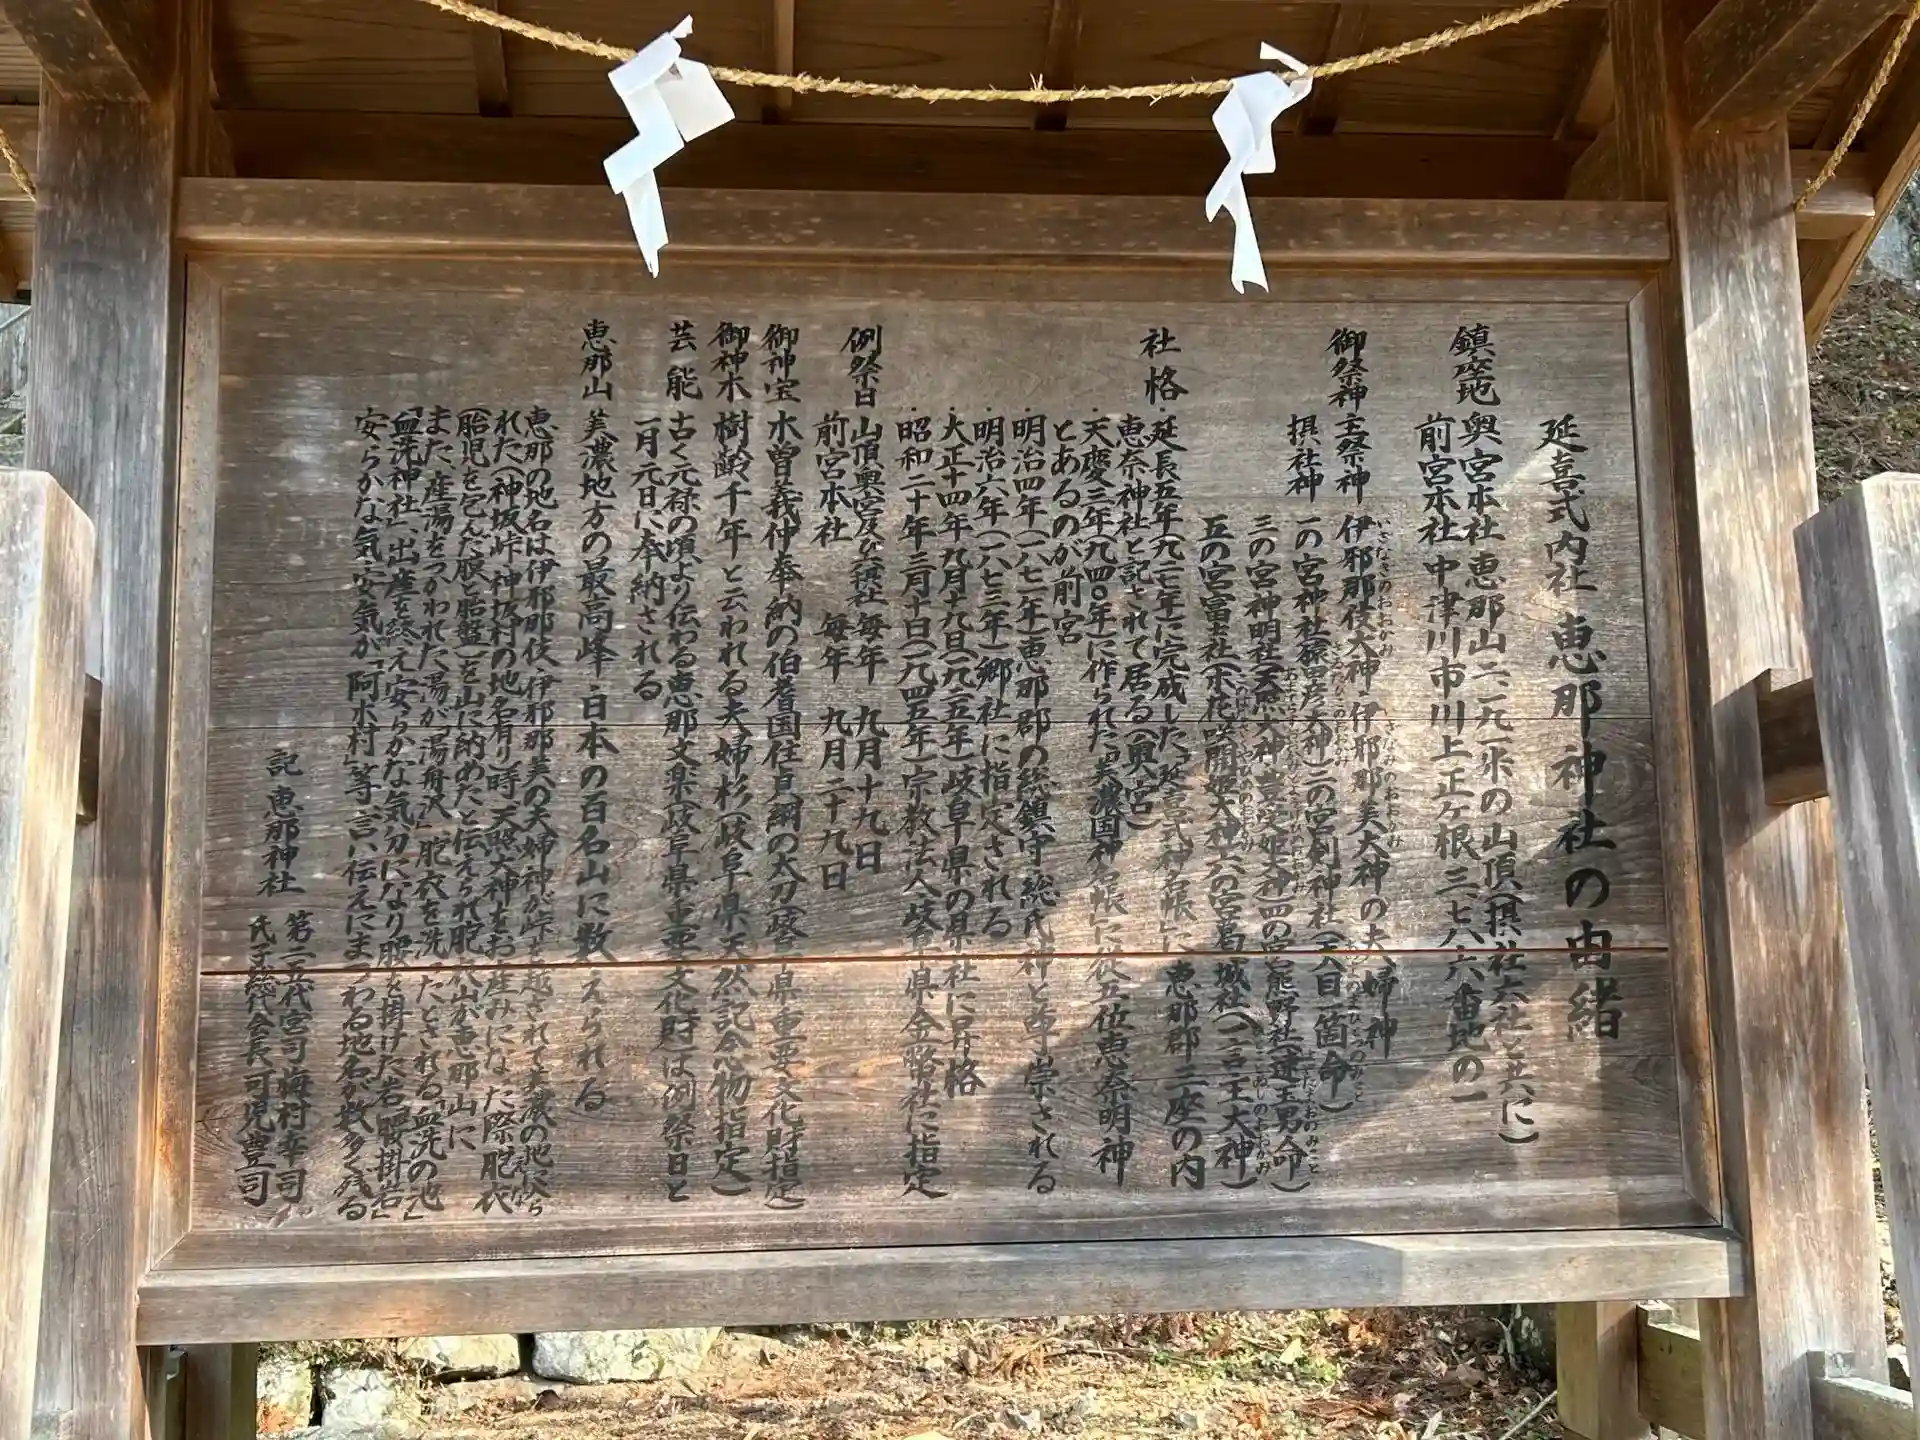 延喜式内社 恵那神社の由緒
鎮座地 奥宮本社 恵那山二、一九一米の山頂(摂社六社と共に)
前宮本社 中津川市川上正ヶ根三七八六番地の一
御祭神 主祭神 伊邪那伎大神・伊邪那美大神の夫婦神
摂社神 一の宮神社(猿田彦大神)二の宮剣神社(天目一箇命)
三の宮神明社(天照大神・豊受姫大神)四の宮熊野社(速玉男命)
五の宮富士社(木花咲開姫大神)六の宮葛城社(一言主大神)
社格 ・延長五年(九二七年)に完成した「延喜式神名帳」に恵那郡三座の内
恵奈神社と記されて居る(奥宮)
・天慶三年(九四〇年)に作られた「美濃国神名帳」に従五位恵奈明神
とあるのが前宮
・明治四年(一八七一年)恵那郡の総鎮守・総氏神と尊崇される
・明治六年(一八七三年)郷社に指定される
・大正十四年九月十九日(一九二五年)岐阜県の県社に昇格
・昭和二十年三月十日(一九四五年)宗教法人岐阜県金幣社に指定
例祭日 山頂奥宮及び六摂社 毎年 九月十九日
前宮本社 毎年 九月二十九日
御神宝 木曽義仲奉納の伯耆国住貞綱の大刀(岐阜県重要文化財指定)
御神木 樹齢千年と云われる夫婦杉(岐阜県天然記念物指定)
芸能 古く元禄の頃より伝わる恵那文楽(岐阜県重要文化財)は例祭日と
一月元日に奉納される
恵那山 美濃地方の最高峰・日本の百名山に数えられる
恵那の地名は伊邪那伎・伊邪那美の夫婦神が峠を越されて美濃の地に来ら
れた(神坂峠・神坂村の地名有り)時 天照大神をお産みになった際 胞衣
(胎児を包んだ膜と胎盤)を山に納めたと伝えられ胞衣山が恵那山に
また、産湯をつかわれた湯が「湯舟沢」胞衣を洗ったとされる「血洗の池」
「血洗神社」、出産を終え安らかな気分になり腰を掛けた岩「腰掛岩」
安らかな気・安気が「阿木村」等言い伝えにまつわる地名が数多く残る
記 恵那神社 第二五代宮司 梅村幸司
氏子総代会長 可児豊司